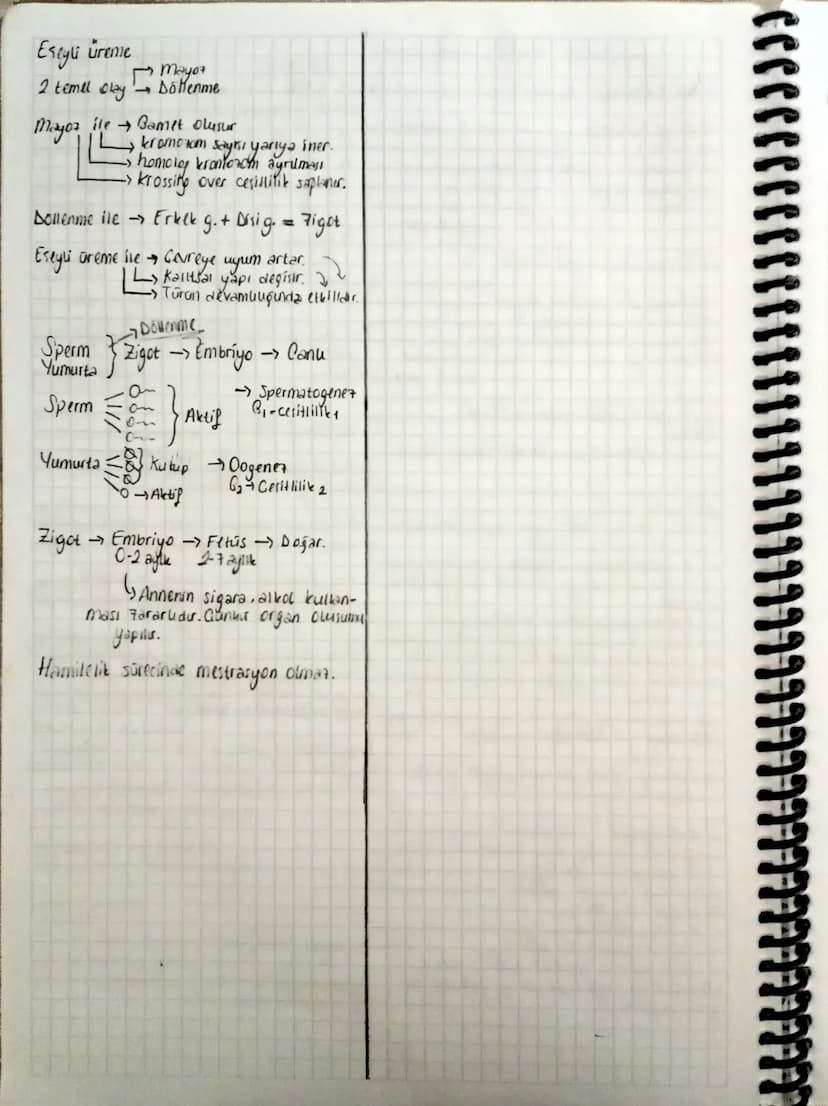 Eşeyli üreme
→ Mayoz
2 temel olay → Döllenme
Mayoz ile → Gamet oluşur
→ kromozom sayısı yarıya iner.
→ homolog kromozom ayrılması
→ krossing over çeşitlilik sağlanır.
Döllenme ile → Erkek g. + Dişi g. = Zigot
Eşeyli üreme ile → Çevreye uyum artar.
→ Kalıtsal yapı değişir.
→ Türün devamlılığında etkilidir.
→ Döllenme
Sperm
Yumurta } Zigot → Embriyo → Canlı
Sperm } Aktif → Spermatogenez
G1-Çeşitlilik1
Yumurta } Kutup → Oogenez
→ Aktif G2→Çeşitlilik 2
Zigot → Embriyo → Fetüs → Doğar.
0-2 aylık 2-7 aylık
→ Annenin sigara, alkol kullan-
ması zararlıdır. Çünkü organ oluşumu
yapılır.
Hamilelik sürecinde mestrasyon olmaz.